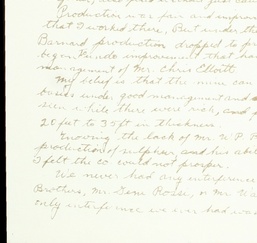 Production was fair and improv
that I worked there, But under the
Barnard production dropped to pr
began, Finds improvement that ha
management of Mr. Chris Elliott
My belief is that the mine can
be used under good management and a
seen while there were rich, and
20 feet to 35 ft in thickness
Knowing the lack of Mr. W. P. B
production of sulphur, and his abil
I felt the co could not prosper.
We never had any interference
Brothers, Mr. Gene Rosen, or Mr. Wa
only interference we ever had was